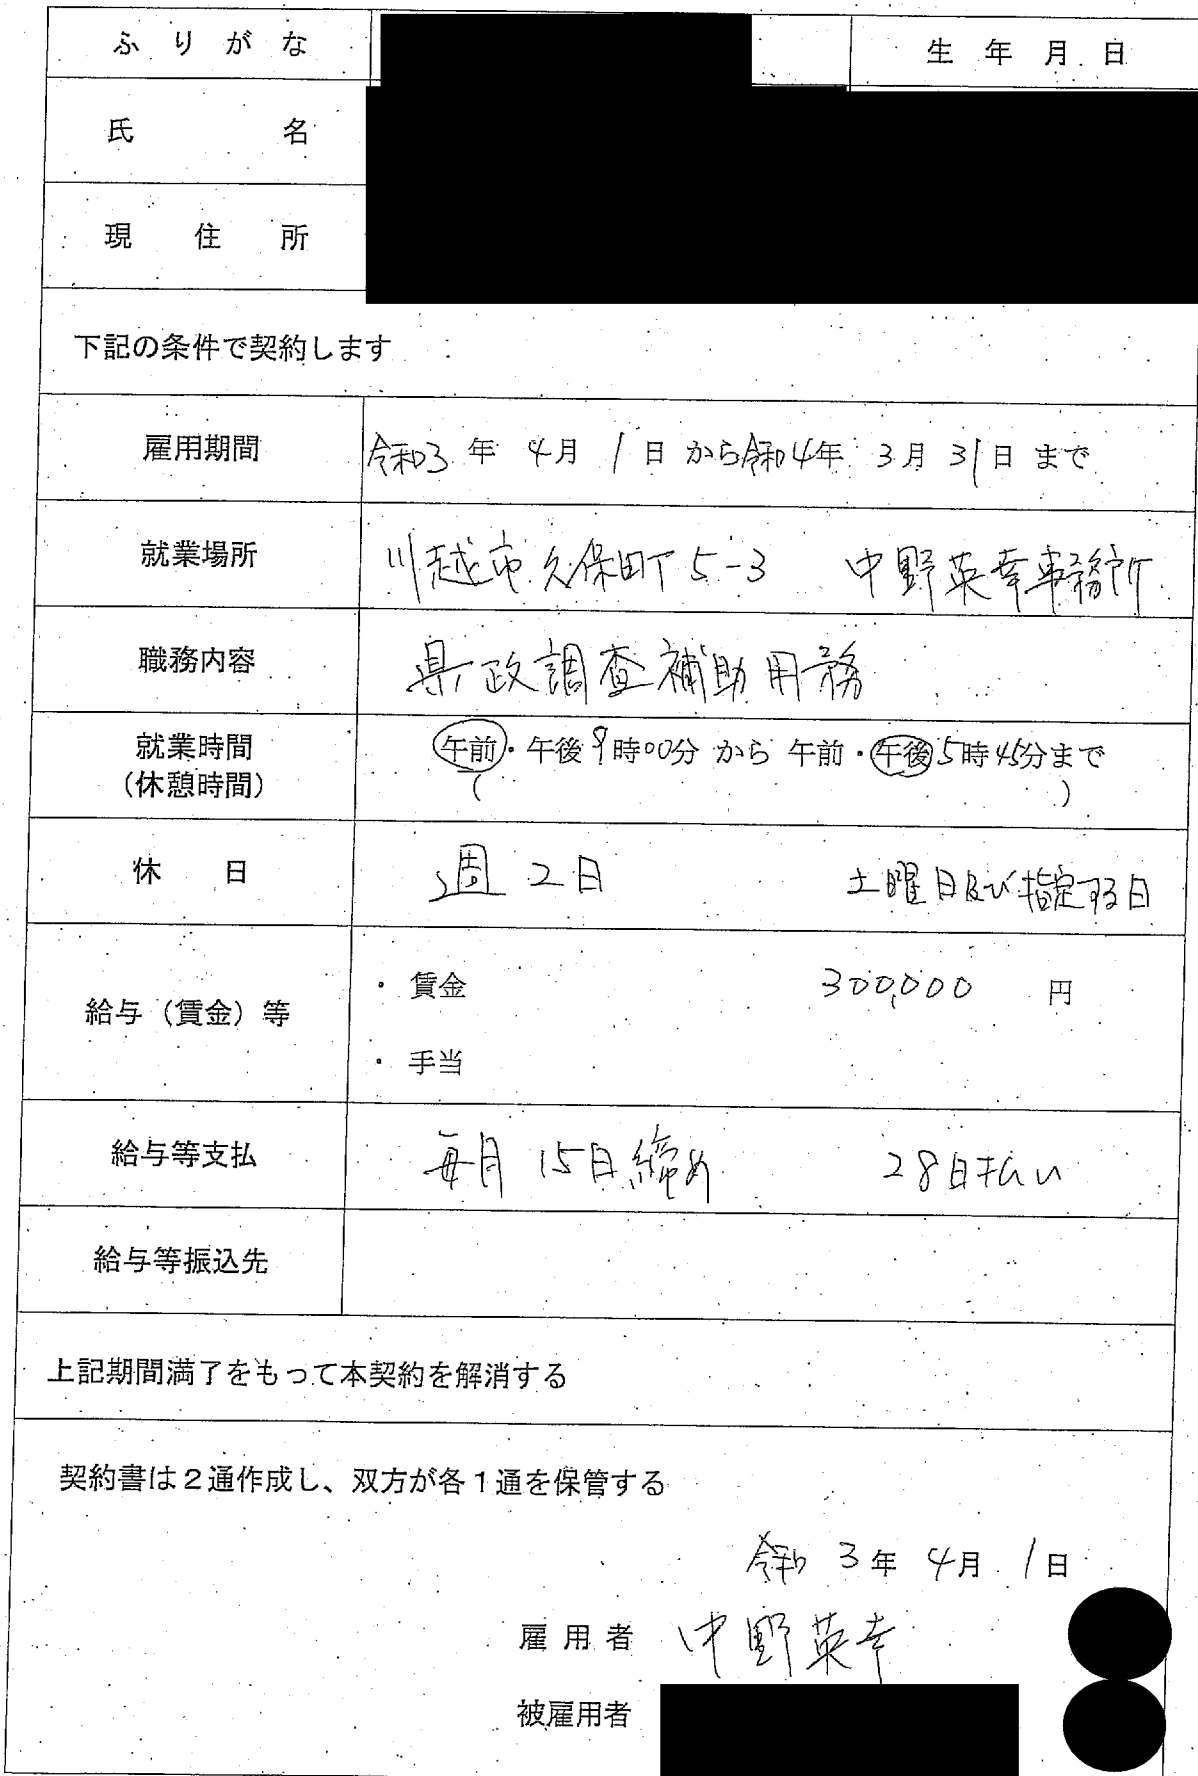 ふりがな
生年月日
氏名
現住所
下記の条件で契約します
雇用期間
令和3年4月1日から令和4年3月31日まで
就業場所
川越市久保町5-3 中野英幸事務所
職務内容
県政調査補助用務
就業時間
(休憩時間)
午前・午後9時00分から午前・午後5時45分まで
( )
休日
週2日 土曜日及び指定する日
給与(賃金)等
・賃金 300,000 円
・手当
給与等支払
毎月15日締め 28日払い
給与等振込先
上記期間満了をもって本契約を解消する
契約書は2通作成し、双方が各1通を保管する
令和3年4月1日
雇用者 中野英幸
被雇用者